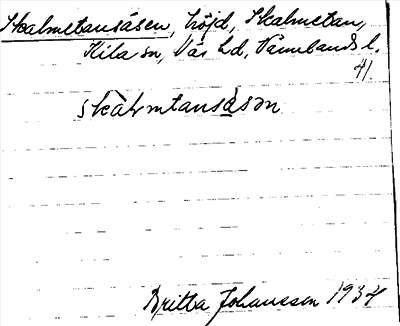 Skalmetansåsen, höjd, Skalmetan,
Kila sn, Näs hd, Värmlands l.
41
skàlmtansåsən
Britta Johansson 1934